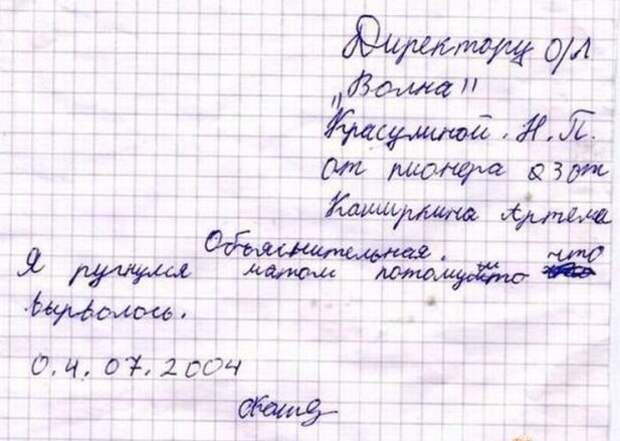 Директору О/Л
„Волна"
Красулиной. Н.П.
от пионера 23 от
Каширкина Артема
Объяснительная.
Я ругнулся матом потому что
вырволось.
0.4.07.2004